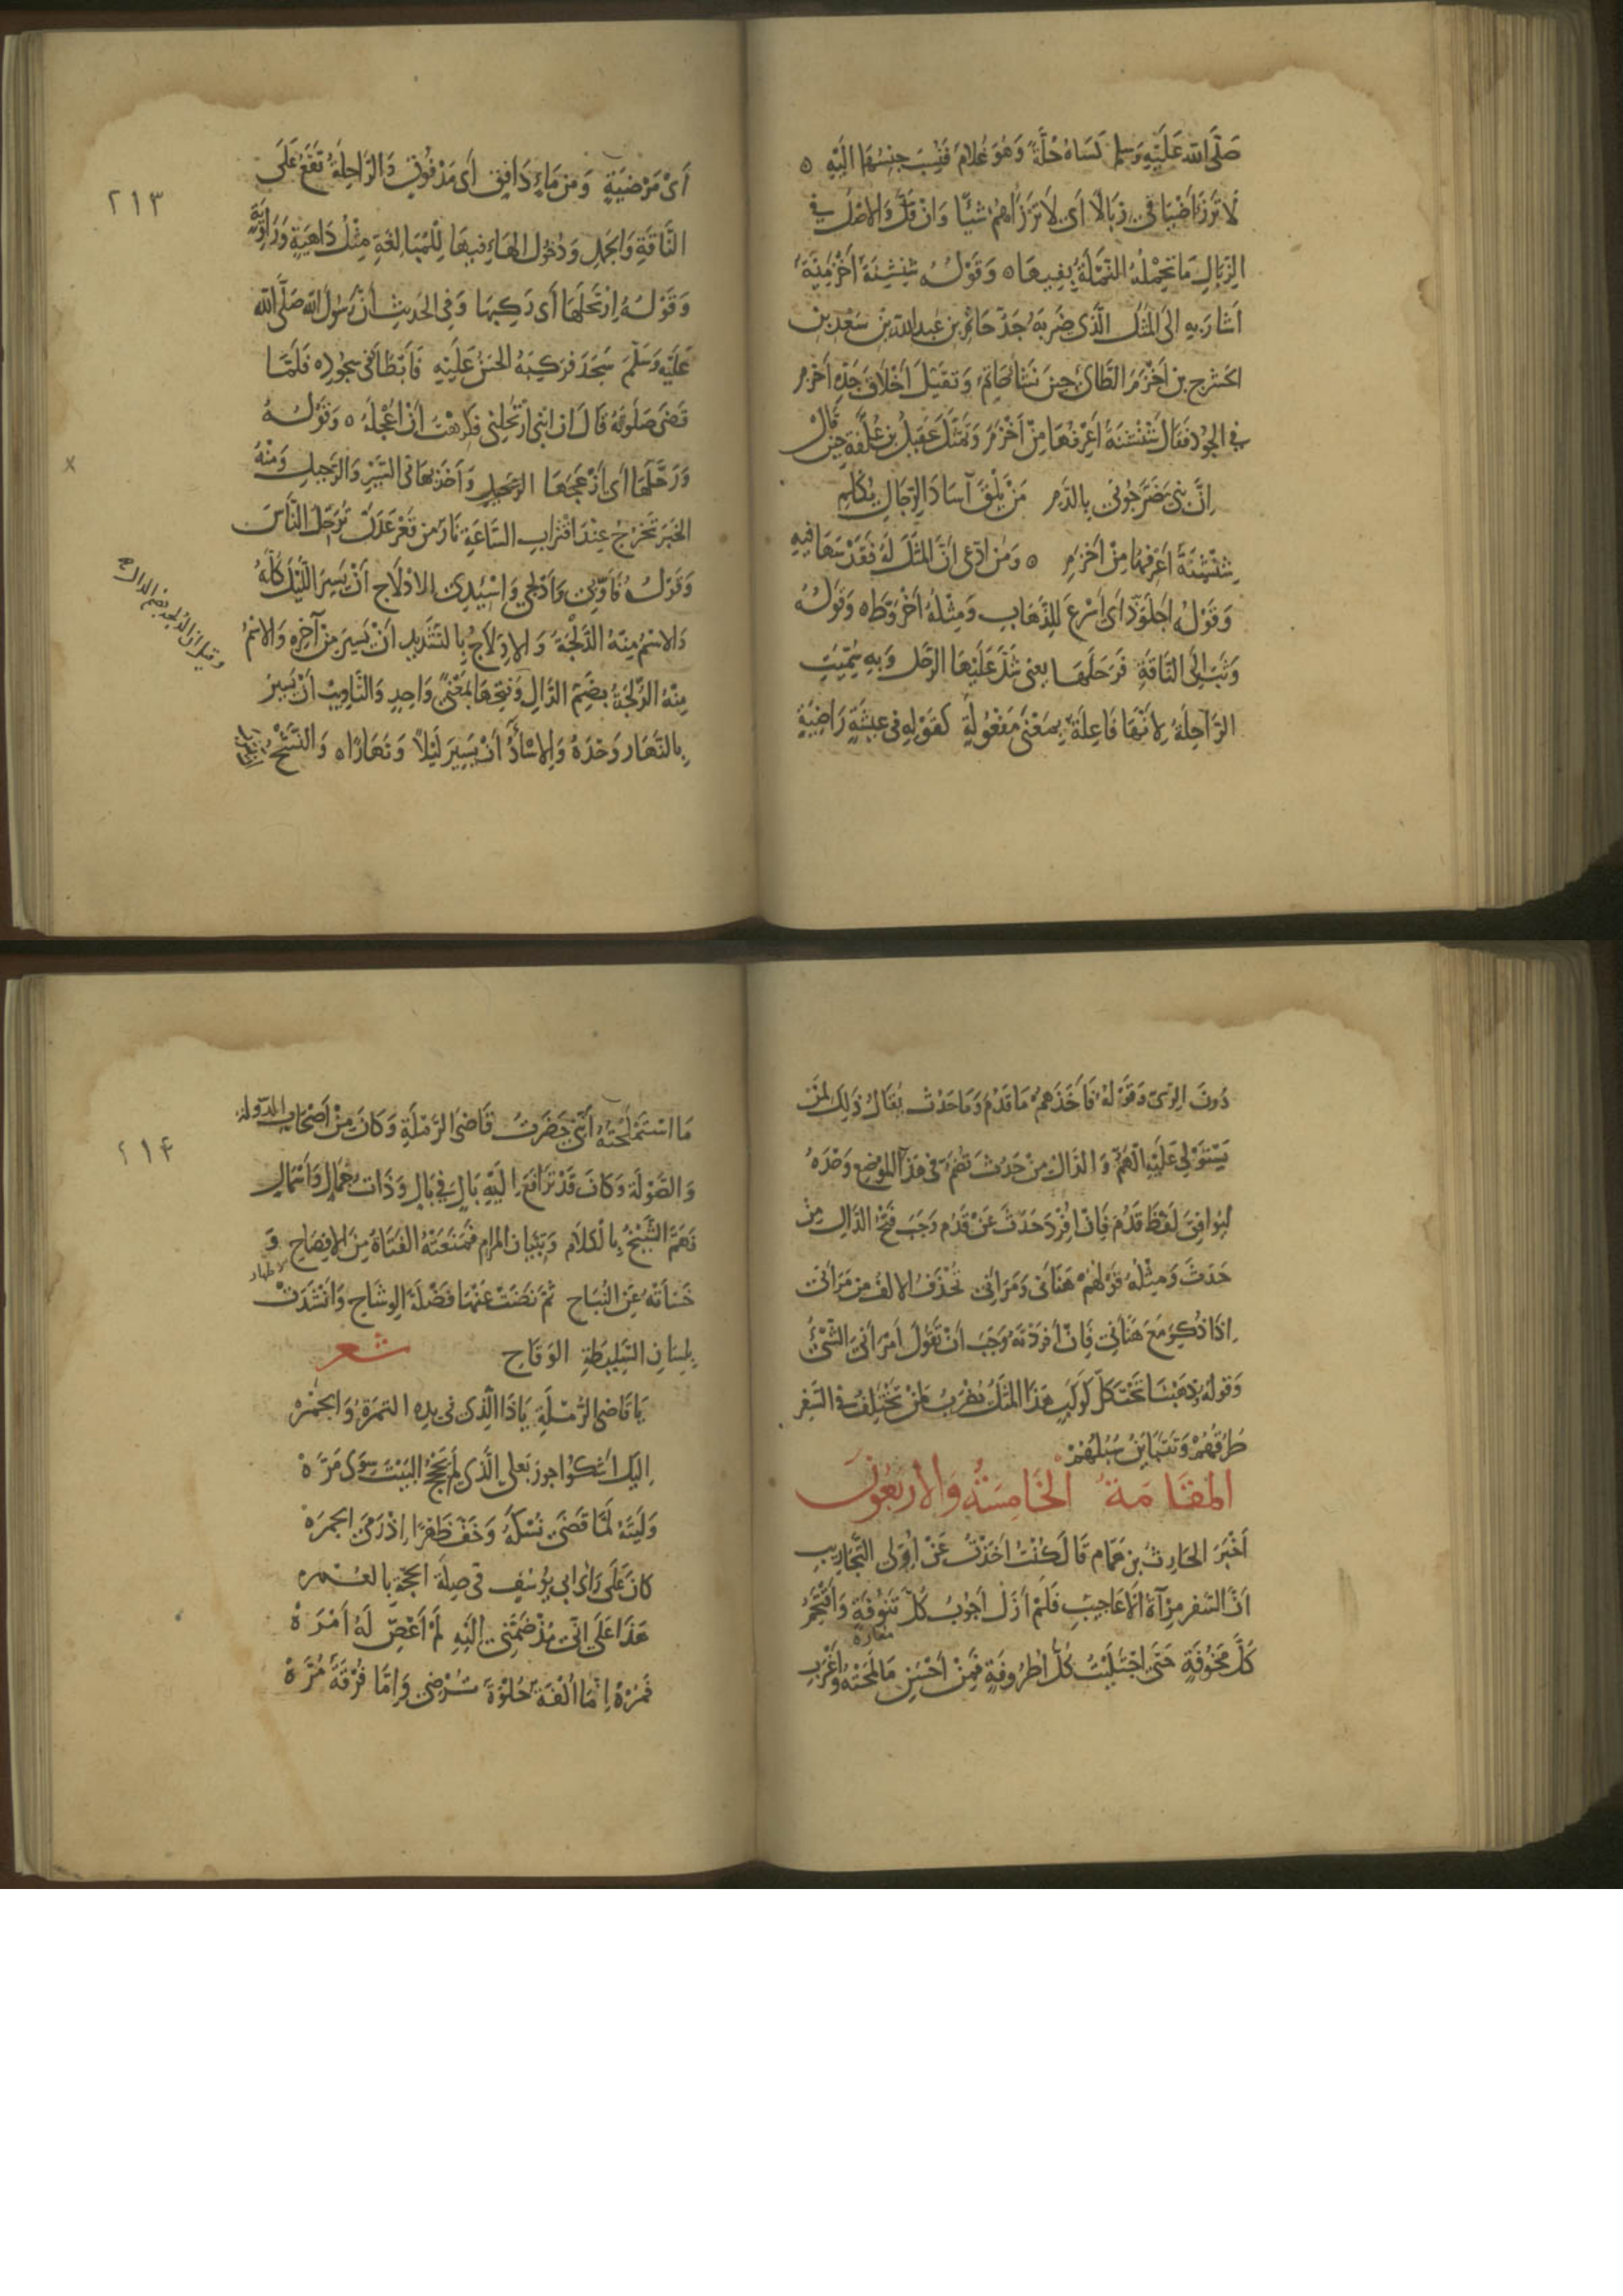 صَلَّى اللهُ عَلَيْهِ وَسلم كَسَاهُ حُلَّةً وَهُوَ غُلَامٌ فَنُسِبَ جِنْسُهَا اِلَيْهِ ٥
لَا تَرْزَأ ضَيَافِى زِبَالًا أَى لَا تَرْزَأهُمْ شَيْئًا وَاِنْ قَلَّ وَالاصْلُ فِى
الزِّبَالِ مَا تَحْمِلُهُ النَّمْلَةُ بِفِيهَا ٥ وَقَوْلُهُ شِنْشِنَةٌ أَخْزَمِيَّةٌ
أَشَارَ بِهِ اِلَى المَثَلِ الَّذِى ضَرَبَهُ جَدُّ حَاتِمِ بن عَبدِ اللهِ بن سَعْدِ بن
الحَشْرج بن أَخْزَمَ الطَّائِى حِينَ نَشَأَ حَاتِمٌ وَتَقَيَّلَ أَخْلَاقَ جَدِّهِ أَخْزم
فِى الجُودِ فَقَالَ شِنْشِنَةٌ أَعْرِفُهَا مِنْ أَخْزَمَ وَتَمَثَّلَ عَقِيلُ بن عُلَّفَةَ حِينَ قَالَ
اِنَّ بَنِىَّ ضَرَّجُونِى بِالدَّمِ مَنْ يَلْقَ آسَادَ الرِّجَالِ يُكْلَمِ
شِنْشِنَةٌ أَعْرِفُهَا مِنْ أَخْزَمِ ٥ وَمَنِ ادَّعَى أَنَّ المَثَلَ لَهُ فَقَدْ سَهَا فِيهِ
وَقَوْلُهُ اجْلَوَّذَ أَى أَسْرَعَ لِلذَّهَابِ وَمِثْلُهُ اخْرَوَّطَ ٥ وَقَوْلُهُ
وَثَبَ اِلَى النَّاقَةِ فَرَحَلَهَا يعنى شَدَّ عَلَيْهَا الرَّحْلَ وَبِهِ سُمِّيَتِ
الرَّاحِلَةُ لِاَنَّهَا فَاعِلَةٌ بِمَعْنَى مَفْعُولَةٍ كَقَوْلِهِ فى عِيشَةٍ رَاضِيَةٍ
٢١٣
أَىْ مَرْضِيَّةٍ وَمِن مَاءٍ دَافِقٍ أَى مَدْفُوقٍ وَالرَّاحِلَةُ تَقَعُ عَلَى
النَّاقَةِ وَالجَمَلِ وَدُخُول الهَاءِ فِيهَا لِلْمُبَالَغَةِ مِثْلُ دَاهِيَةٍ وَرَاوِيَةٍ
وَقَوْلُهُ اِرْتَحَلَهَا أَى رَكِبَهَا وَفِى الحَدِيثِ أَنَّ رَسُولَ اللهِ صَلَّى الله
عَلَيْهِ وَسَلَّمَ سَجَدَ فَرَكِبَهُ الحَسَنُ عَلَيْهِ فَأَبْطَأَ فى سُجُودِهِ فَلَمَّا
قَضَى صَلَوتَهُ قَالَ اِنَّ ابْنِى ارْتَحَلَنِى فَكَرِهْتُ أَنْ اُعْجِلَهُ ٥ وَقَوْلُهُ
وَرَحَّلَهَا أَى أَزْعَجَهَا الرَّحِيل وَأَخَذَ بِهَا فِى السَّيْرِ وَالتَّرْحِيلِ وَمِنْهُ
الخَبَرُ تَخْرُجُ عِنْدَ اقْتِرَابِ السَّاعَةِ نَارٌ مِن قَعْرِ عَدَنَ تُرَحِّلُ النَّاسَ
وَقَوْلُهُ فَأَوِّبِى وَأَدْلِجِى وَاسْئِدِى الادْلَاج أَنْ يَسِيرَ اللَّيْلَ كُلَّهُ
وَالاسْمُ مِنْهُ الدَّلْجَةُ وَالاِدِّلَاجُ بِالتَّشْدِيدِ أَنْ يَسِيرَ مِنْ آخِرِهِ وَالاسْمُ
مِنْهُ الدُّلْجَةُ بِضَمِّ الدَّالِ وَفَتْحِهَا بِمَعْنًى وَاحِدٍ وَالتَّاوِيبُ أَنْ يَسِيرَ
بِالنَّهَارِ وَحْدَهُ وَالاِسْآدُ أَنْ يَسِيرَ لَيْلاً وَنَهَارًا ٥ وَالنَّشْحُ
وقيل ان الدلجة بضم الدال
دُونَ الرِّىِّ وَقَوْلُهُ فَأَخَذَهُمْ مَا قَدُمَ وَمَا حَدُثَ يُقَالُ ذَلِكَ لِمَنْ
يَسْتَوْلِى عَلَيْهِ الهَمُّ وَالدَّالُ مِنْ حَدُثَ تُضَمُّ فى هَذَا المَوْضِعِ وَحْدَهُ
لِيُوَافِقَ لَفْظَ قَدُمَ فَاِنْ اُفْرِدَ حَدَثَ عَنْ قَدُمَ وَجَبَ فَتْحُ الدَّالِ مِنْ
حَدَثَ وَمِثْلُهُ قَوْلُهُمْ هَنَأنِى وَمَرَأَنِى تُحْذَفُ الالفُ مِن مَرَأنِى
اِذَا ذُكِرَ مَعَ هَنَأنِى فَاِنْ أَفْرَدْتَهُ وَجَبَ أَنْ تَقُولَ أَمْرَأَنِى الشَّىْءُ
وَقولهُ ذَهَبْنَا تَحْتَ كُلِّ كَوْكَبٍ هَذَا المَثَلُ يُضْرَبُ لِمَنْ تَخْتَلِفُ فى السَّفَرِ
طُرُقُهُمْ وَتَتَبَايَنُ سُبُلُهُمْ
المَقَامَةُ الْخَامِسَةُ وَالأرْبَعُونَ
أَخْبَرَ الحَارِثُ بن هَمَّام قَالَ كُنْتُ أَخَذْتُ عَنْ اُولِى التَّجَارِيبِ
اَنَّ السَّفَرَ مِرْآةُ الأَعَاجِيبِ فَلَمْ أَزَلْ أَجُوبُ كُلَّ تَنُوفَةٍ وَأَقْتَحِمُ
مفازة
كُلَّ مَخُوفَةٍ حَتَّى اجْتَلَيْتُ كُلَّ اُطْرُوفَةٍ فَمِنْ أَحْسَنِ مَا لَمَحْتُهُ وَأَغْرَبِ
٢١٤
مَا اسْتَمْلَحْتُهُ أَنِّى حَضَرْتُ قَاضِىَ الرَّمْلَةِ وَكَانَ مِنْ أَصْحَابِ الدَّولة
وَالصَّوْلَة وَكَانَ قَدْ تَرَافَعَ اِلَيْهِ بَالٍ فِى بَالٍ وَذَات جَمَالٍ وَأَسْمَالٍ
فَهَمَّ الشَّيْخُ بِالْكَلَام وَتِبْيَانِ المَرَام فَمَنَعَتْهُ الفَتَاةُ مِنَ الإفصَاحِ وَ
الاظهار
خَسَأَتْهُ عَنِ النُّبَاحِ ثُمَّ نَضَتْ عَنْهَا فَضْلَةَ الوِشَاحِ وَأَنْشَدَتْ
بِلِسَانِ السَّلِيطَةِ الوَقَاحِ شعر
يَا قَاضِىَ الرَّمْلَةِ يَا ذَا الَّذِى فى يَدِهِ التمرَةُ وَالجَمْره
اِلَيْكَ اَشْكُوا جورَ بَعْلِى الَّذِى لَمْ يَحُجَّ الْبَيْتَ سِوَى مَرَّهْ
وَلَيْتَهُ لَمَّا قَضَى نُسْكَهُ وَخَفَّ ظَهْرًا اِذْ رَمَى الجَمرَهْ
كَانَ عَلَى رَأىِ ابى يُوسُفٍ فى صِلَةِ الحَجَّةِ بِالعُمره
هَذَا عَلَى اَنِّى مُذْ ضَمَّنِى اِلَيْهِ لَمْ أَعْصِ لَهُ أَمْرَهْ
فَمُرْهُ اِمَّا اُلْفَةً حُلْوَةً تُرْضِى وَاِمَّا فُرْقَةً مُرَّهْ